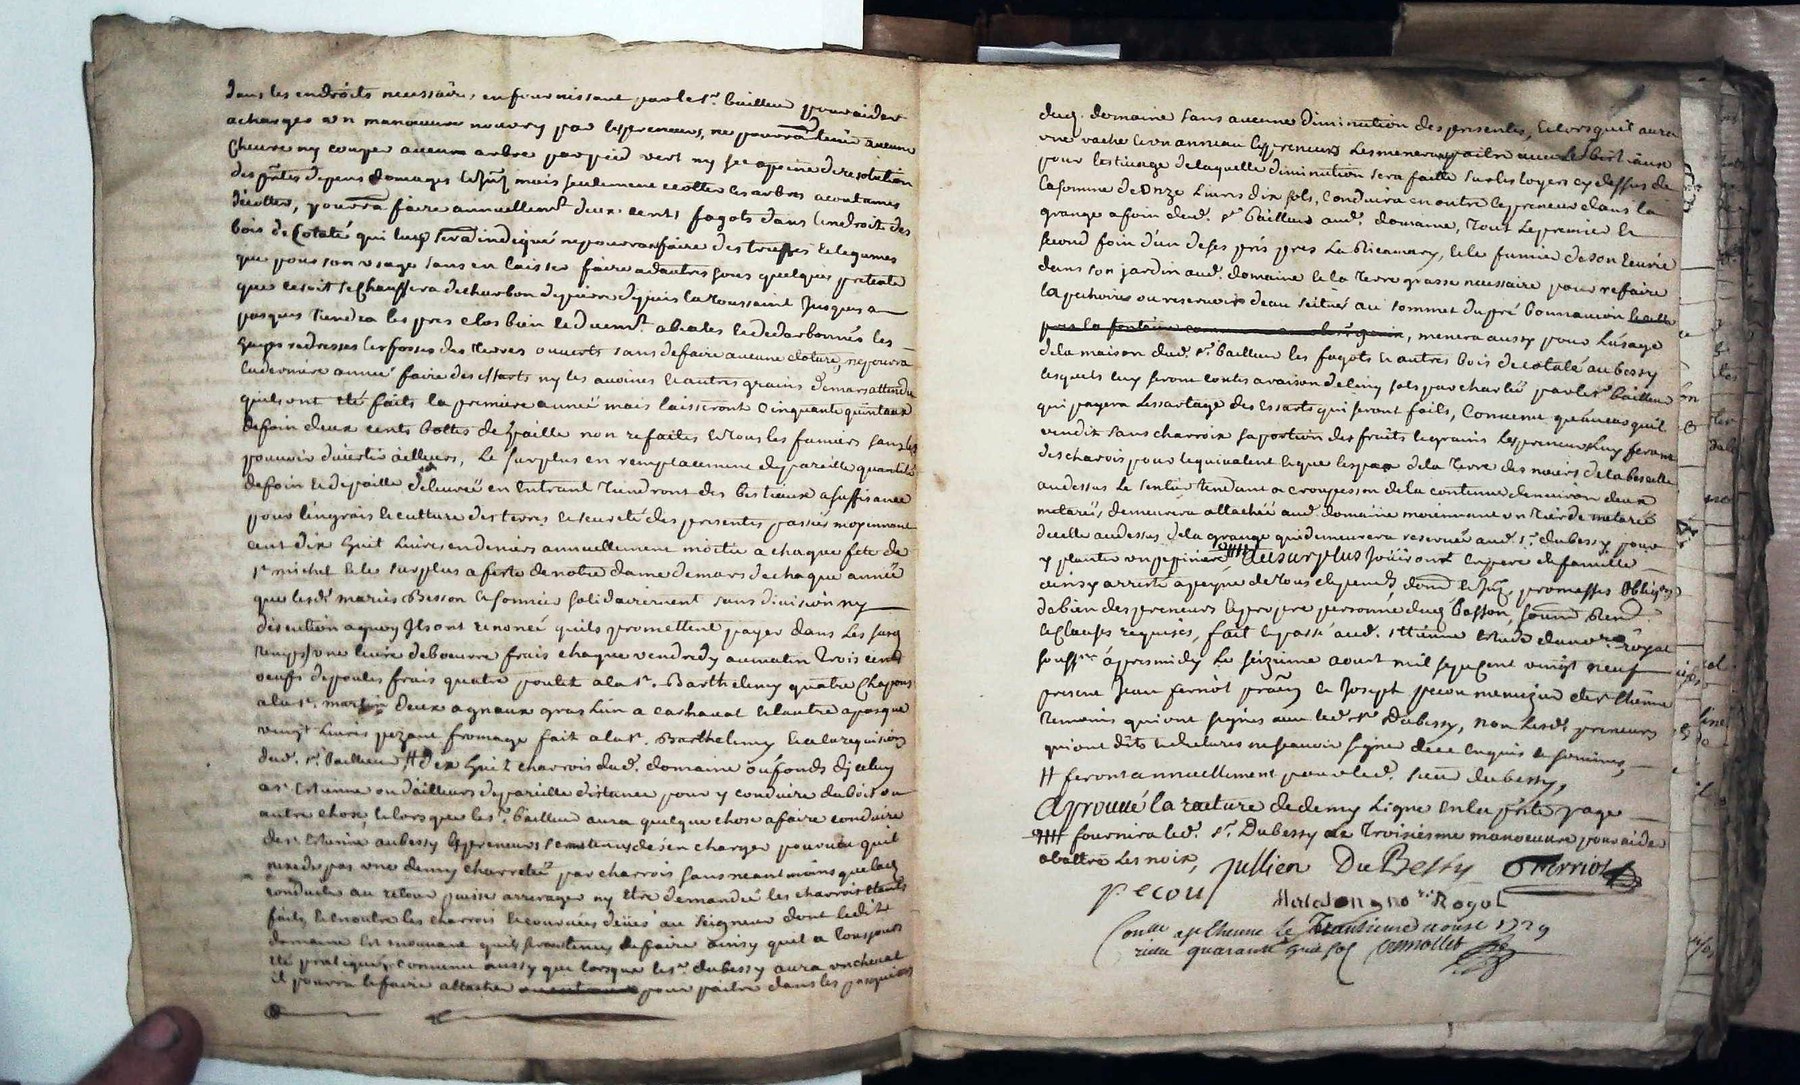 dans les endroits necessaires, en fournissant par le sr. bailleur pour aider
a charger un manoeuvre nourry par les preneurs, ne pourra tenir aucune
chevre ny couper aucun arbre par pied vert ny sec a peine de resolution
des pntes depens domages mais seulement ecotter les arbres acoutumes
d'ecotter, pourra faire annuellemt. deux cents fagots dans l'endroit des
bois de Cotaté qui luy sera indiqué ne pourra faire des truffes et legumes
que pour son usage sans en laisser faire a d'autres sous quelque pretexte
que ce soit se chauffera de charbon de pierre depuis la toussaint jusques a
pasques tiendra les prés clos bien et duemt. abalés et dedarbonnés les
hayes redresser les fosses des terres ouverts sans defaire aucune cloture, ne pourra
la derniere année faire des essarts ny les avoines et autres grains de mars attendu
qu'ils ont été faits la premiere année mais laisseront cinquante quintaux
de foin deux cents bottes de paille non refaites et tous les fumiers sans les
pouvoir divertir ailleurs, le surplus en remplacement de pareille quantité
de foin et de paille delivrée en entrant tiendront des bestiaux a suffisance
pour l'engrais et culture des terres et seureté des presentes passées moyennant
cent dix huit livres en deniers annuellement moitié a chaque fete de
st michel et le surplus a feste de notre dame de mars de chaque année
que lesds. mariés Besson et Sonnier solidairement sans division ny
discution a quoy ils ont renoncé qu'ils promettent payer dans les susd
temps, une livre de beurre frais chaque vendredy au matin trois cents
oeufs de poules frais quatre poulets a la st. Barthelemy quatre chapons
a la st. martin deux agneaux gras l'un a carnaval et l'autre a pasque
vingt livres pezant fromage fait a la st. Barthelemy et a la requisition
dud. sr. bailleur # dix huit charrois dud. domaine ou fonds d'iceluy
a st Etienne ou d'ailleurs de pareille distance pour y conduire du bois ou
autre chose, et lorsque le sr. bailleur aura quelque chose a faire conduire
de st. Estienne aubessy les preneurs seront tenus de s'en charger pourvu qu'il
n'excede pas une demy charretée par charrois sans neantmoins que lad
conduite au retour puisse arrerager ny etre demandée les charrois etants
faits, et en outre les charrois et courvées deües au seigneur dont ledit
domaine est mouvant qu'ils seront tenus de faire ainsy qu'il a toujours
été pratiqué, convenu aussy que lorsque le sr. dubessy aura un cheval
il pourra le faire attacher pour paitre dans les pasquiers
dud. domaine sans aucune diminution des presentes, et lorsqu'il aura
une vache et un anneau les preneurs les meneront paitre avec les bestiaux
pour l'estivage de laquelle diminution sera faitte sur les loyers cy dessus de
la somme de onze livres dix sols, conduira en outre le preneur dans la
grange a foin dud. sr. bailleur aud. domaine, tout le premier et
second foin d'un de ses prés pres la Ricamary, et le fumier de son ecurie
dans son jardin aud. domaine et la terre grasse necessaire pour refaire
la pechoire ou reservoir d'eau scitué au sommet du pré bonnavion
menera aussy pour l'usage
de la maison dud. sr. bailleur les fagots et autres bois de cotaté aubessy
lesquels luy seront contés a raison de cinq sols par chartée par le sr. bailleur
qui payera l'essartage des essarts qui seront faits, convenu qu'en cas qu'il
vendit sans charroix sa portion des fruits et grains les preneurs luy feront
des charois pour l'equivalent et que l'espace de la terre des noiers de la boselle
au dessus le sentier tendant a de la contenue d'environ deux
metarées, demeurera attachée aud. domaine moiennant un tier de metarée
d'icelle au dessus de la grange qui demeurera reservée aud. sr. dubessy pour
y planter un pepiniere #### et au surplus jouiront en pere de famille
ainsy arresté a peyne de tous depends, dom. et promesses obligons
de bien des preneurs et propre personne dud Besson, soum. ren.
et clauses requises, fait et passé aud. st Etienne etude du nore. royal
soussné. apres midy le seizieme aout mil sept cent vingt neuf
present Jean ferriot prâen et Joseph pecou menuzier de st Etienne
temoins qui ont signés avec led. sr. Dubessy, non lesds. preneurs
qui ont dits et declarés ne scavoir signer de ce enquis et sommés,
# feront annuellement pour led. sieur dubessy,
Approuvé la rature de demy ligne en la pnte page
#### fournira led. sr. Dubessy le troisiesme manoeuvre pour aider
abattre les noix, Jullien DuBessy Ferriot
pecou
nore. Royal
Conlle a st Etienne le aoust 1729
recu quarante huit sols